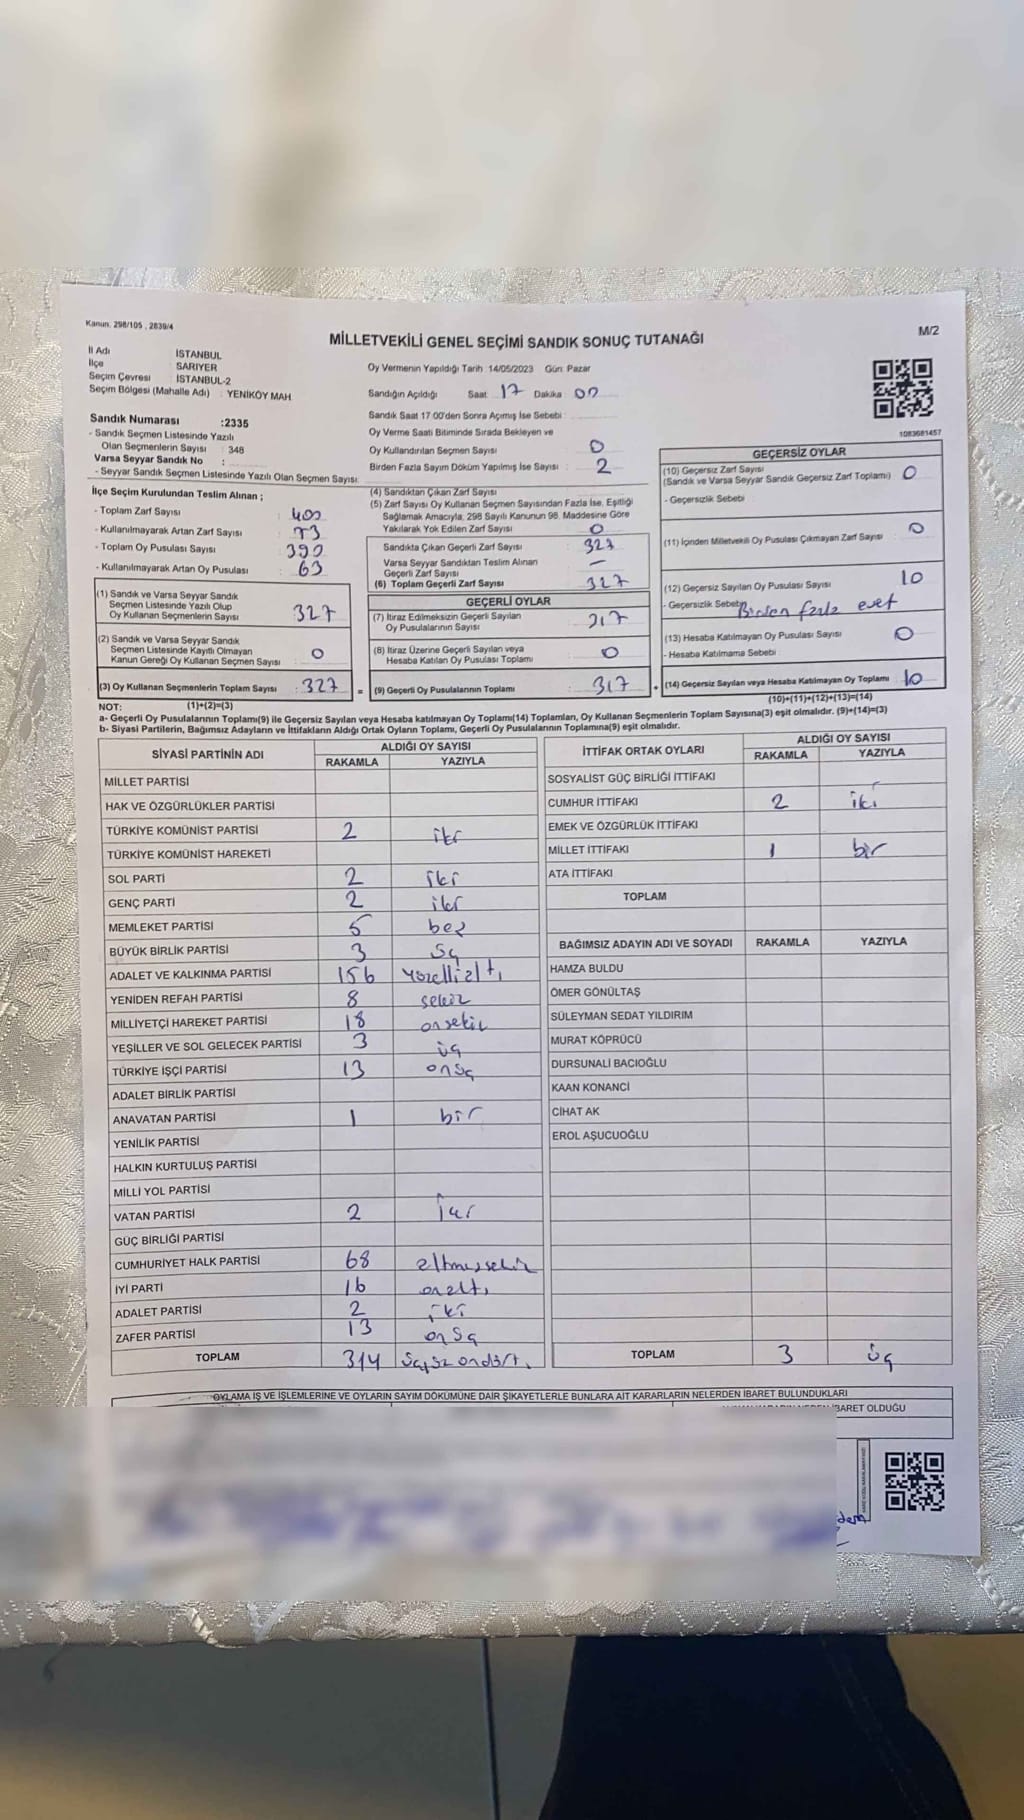 Kanun. 298/105 , 2839/4
M/2
MİLLETVEKİLİ GENEL SEÇİMİ SANDIK SONUÇ TUTANAĞI
İl Adı İSTANBUL
İlçe SARIYER
Seçim Çevresi İSTANBUL-2
Seçim Bölgesi (Mahalle Adı) : YENİKÖY MAH
Sandık Numarası :2335
- Sandık Seçmen Listesinde Yazılı
Olan Seçmenlerin Sayısı : 348
Varsa Seyyar Sandık No :
- Seyyar Sandık Seçmen Listesinde Yazılı Olan Seçmen Sayısı:
Oy Vermenin Yapıldığı Tarih: 14/05/2023 Gün: Pazar
Sandığın Açıldığı Saat: 17 Dakika: 00
Sandık Saat 17:00'den Sonra Açımış İse Sebebi :
Oy Verme Saati Bitiminde Sırada Bekleyen ve
Oy Kullandırılan Seçmen Sayısı 0
Birden Fazla Sayım Döküm Yapılmış İse Sayısı : 2
1083681457
İlçe Seçim Kurulundan Teslim Alınan ;
- Toplam Zarf Sayısı : 400
- Kullanılmayarak Artan Zarf Sayısı : 73
- Toplam Oy Pusulası Sayısı : 390
- Kullanılmayarak Artan Oy Pusulası : 63
(1) Sandık ve Varsa Seyyar Sandık
Seçmen Listesinde Yazılı Olup
Oy Kullanan Seçmenlerin Sayısı : 327
(2) Sandık ve Varsa Seyyar Sandık
Seçmen Listesinde Kayıtlı Olmayan
Kanun Gereği Oy Kullanan Seçmen Sayısı : 0
(3) Oy Kullanan Seçmenlerin Toplam Sayısı : 327 =
(1)+(2)=(3)
(4) Sandıktan Çıkan Zarf Sayısı
(5) Zarf Sayısı Oy Kullanan Seçmen Sayısından Fazla İse, Eşitliği
Sağlamak Amacıyla, 298 Sayılı Kanunun 98. Maddesine Göre
Yakılarak Yok Edilen Zarf Sayısı : 0
Sandıkta Çıkan Geçerli Zarf Sayısı : 327
Varsa Seyyar Sandıktan Teslim Alınan
Geçerli Zarf Sayısı : —
(6) Toplam Geçerli Zarf Sayısı : 327
GEÇERLİ OYLAR
(7) İtiraz Edilmeksizin Geçerli Sayılan
Oy Pusulalarının Sayısı : 317
(8) İtiraz Üzerine Geçerli Sayılan veya
Hesaba Katılan Oy Pusulası Toplamı : 0
(9) Geçerli Oy Pusulalarının Toplamı : 317 +
GEÇERSİZ OYLAR
(10) Geçersiz Zarf Sayısı
(Sandık ve Varsa Seyyar Sandık Geçersiz Zarf Toplamı) : 0
- Geçersizlik Sebebi
(11) İçinden Milletvekili Oy Pusulası Çıkmayan Zarf Sayısı : 0
(12) Geçersiz Sayılan Oy Pusulası Sayısı : 10
- Geçersizlik Sebebi Birden fazla evet
(13) Hesaba Katılmayan Oy Pusulası Sayısı : 0
- Hesaba Katılmama Sebebi :
(14) Geçersiz Sayılan veya Hesaba Katılmayan Oy Toplamı : 10
(10)+(11)+(12)+(13)=(14)
NOT:
a- Geçerli Oy Pusulalarının Toplamı(9) ile Geçersiz Sayılan veya Hesaba katılmayan Oy Toplamı(14) Toplamları, Oy Kullanan Seçmenlerin Toplam Sayısına(3) eşit olmalıdır. (9)+(14)=(3)
b- Siyasi Partilerin, Bağımsız Adayların ve İttifakların Aldığı Ortak Oyların Toplamı, Geçerli Oy Pusulalarının Toplamına(9) eşit olmalıdır.
SİYASİ PARTİNİN ADI ALDIĞI OY SAYISI
RAKAMLA YAZIYLA
MİLLET PARTİSİ
HAK VE ÖZGÜRLÜKLER PARTİSİ
TÜRKİYE KOMÜNİST PARTİSİ 2 iki
TÜRKİYE KOMÜNİST HAREKETİ
SOL PARTİ 2 iki
GENÇ PARTİ 2 iki
MEMLEKET PARTİSİ 5 beş
BÜYÜK BİRLİK PARTİSİ 3 üç
ADALET VE KALKINMA PARTİSİ 156 yüzellialtı
YENİDEN REFAH PARTİSİ 8 sekiz
MİLLİYETÇİ HAREKET PARTİSİ 18 onsekiz
YEŞİLLER VE SOL GELECEK PARTİSİ 3 üç
TÜRKİYE İŞÇİ PARTİSİ 13 onüç
ADALET BİRLİK PARTİSİ
ANAVATAN PARTİSİ 1 bir
YENİLİK PARTİSİ
HALKIN KURTULUŞ PARTİSİ
MİLLİ YOL PARTİSİ
VATAN PARTİSİ 2 iki
GÜÇ BİRLİĞİ PARTİSİ
CUMHURİYET HALK PARTİSİ 68 altmışsekiz
İYİ PARTİ 16 onaltı
ADALET PARTİSİ 2 iki
ZAFER PARTİSİ 13 onüç
TOPLAM 314 üçyüzondört
İTTİFAK ORTAK OYLARI ALDIĞI OY SAYISI
RAKAMLA YAZIYLA
SOSYALİST GÜÇ BİRLİĞİ İTTİFAKI
CUMHUR İTTİFAKI 2 iki
EMEK VE ÖZGÜRLÜK İTTİFAKI
MİLLET İTTİFAKI 1 bir
ATA İTTİFAKI
TOPLAM
BAĞIMSIZ ADAYIN ADI VE SOYADI RAKAMLA YAZIYLA
HAMZA BULDU
ÖMER GÖNÜLTAŞ
SÜLEYMAN SEDAT YILDIRIM
MURAT KÖPRÜCÜ
DURSUNALİ BACIOĞLU
KAAN KONANCİ
CİHAT AK
EROL AŞUCUOĞLU
TOPLAM 3 üç
OYLAMA İŞ VE İŞLEMLERİNE VE OYLARIN SAYIM DÖKÜMÜNE DAİR ŞİKAYETLERLE BUNLARA AİT KARARLARIN NELERDEN İBARET BULUNDUKLARI
İBARET OLDUĞU